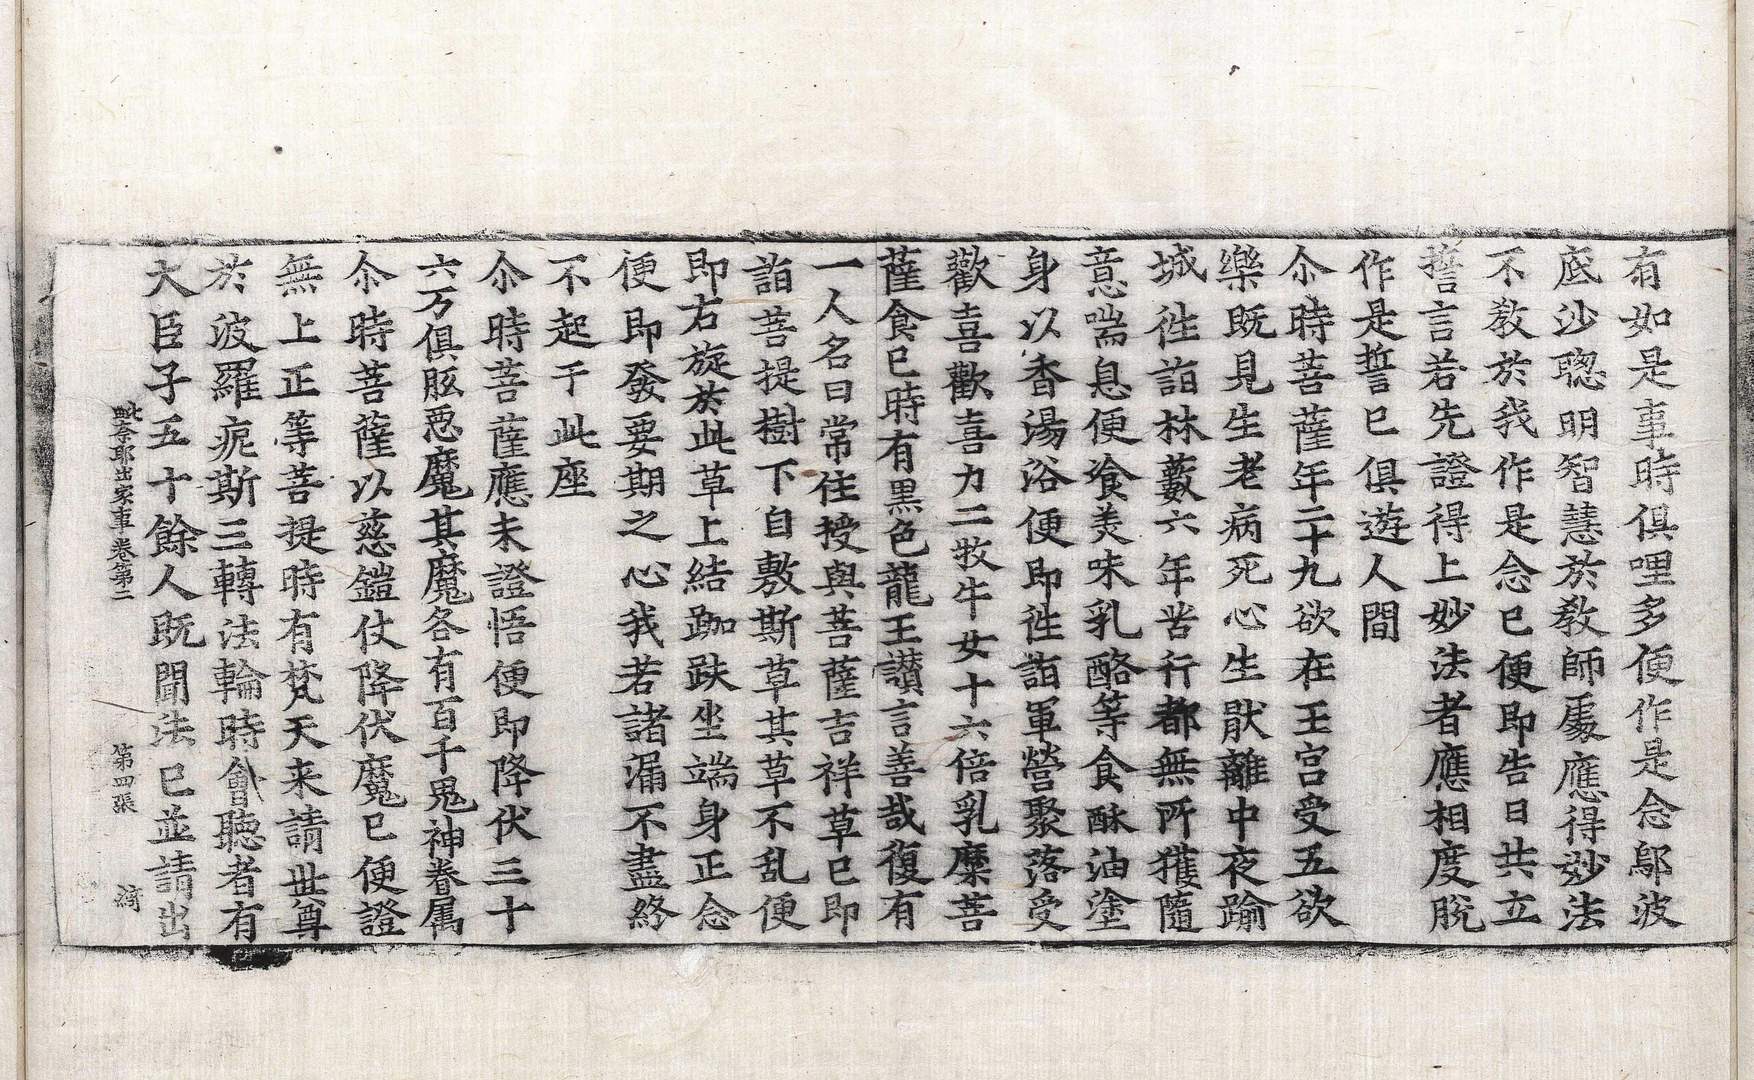 有如是事時俱哩多便作是念鄔波
底沙聦明智慧於教師䖏應得妙法
不教於我作是念已便即告曰共立
誓言若先證得上妙法者應相度脫
作是誓已俱遊人間
尒時菩薩年二十九欲在王宮受五欲
樂既見生老病死心生猒離中夜踰
城徃詣林藪六年苦行都無所獲隨
意喘息便飡美味乳酪等食酥油塗
身以香湯浴便即徃詣軍營聚落受
歡喜歡喜力二牧牛女十六倍乳糜菩
薩食已時有黑色龍王讃言善哉復有
一人名曰常住授與菩薩吉祥草已即
詣菩提樹下自敷斯草其草不乱便
即右旋於此草上結跏趺坐端身正念
便即發要期之心我若諸漏不盡終
不起于此座
尒時菩薩應未證悟便即降伏三十
六万俱胝惡魔其魔各有百千鬼神眷属
尒時菩薩以慈鎧仗降伏魔已便證
無上正等菩提時有梵天来請世尊
於波羅痆斯三轉法輪時會聽者有
大臣子五十餘人既聞法已並請出
毗奈耶出家事卷第二　第四張　𣹢